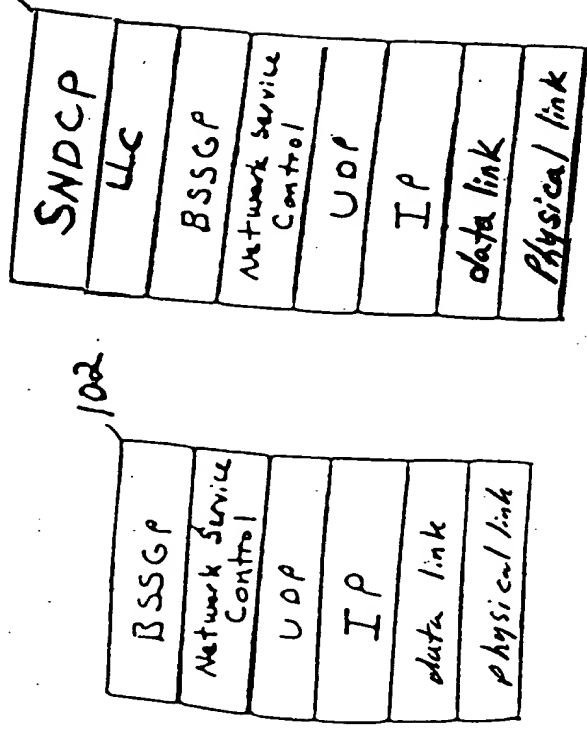 SNDCP
LLC
BSSGP
Network Service
Control
UDP
IP
data link
Physical link
102
BSSGP
Network Service
Control
UDP
IP
data link
physical link